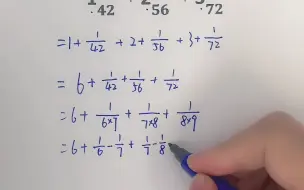 42 56 72
=1+1/42 +2+1/56 +3+1/72
=6+1/42+1/56+1/72
=6+1/6×7+1/7×8+1/8×9
=6+1/6-1/7+1/7-1/8